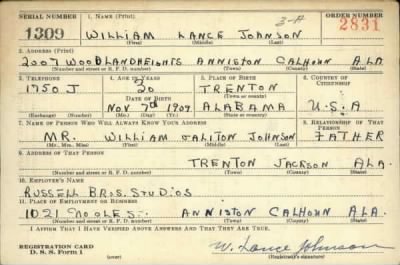 SERIAL NUMBER 1. NAME (Print) ORDER NUMBER
1309 WILLIAM LANCE JOHNSON 3-A 2831
(First) (Middle) (Last)
2. ADDRESS (Print)
2007 WOODLANDHEIGHTS ANNISTON CALHOUN ALA
(Number and street or R. F. D. number) (Town) (County) (State)
3. TELEPHONE 4. AGE IN YEARS 5. PLACE OF BIRTH 6. COUNTRY OF CITIZENSHIP
1750 J TRENTON
DATE OF BIRTH (Town or county)
NOV 7th 1909 ALABAMA U.S.A
(Exchange) (Number) (Mo.) (Day) (Yr.) (State or country)
7. NAME OF PERSON WHO WILL ALWAYS KNOW YOUR ADDRESS 8. RELATIONSHIP OF THAT PERSON
MR. WILLIAM JOHNSON FATHER
(Mr., Mrs., Miss) (First) (Middle) (Last)
9. ADDRESS OF THAT PERSON
TRENTON JACKSON ALA.
(Number and street or R. F. D. number) (Town) (County) (State)
10. EMPLOYER'S NAME
RUSSELL BROS. STUDIOS
11. PLACE OF EMPLOYMENT OR BUSINESS
1021 NOBLE ST. ANNISTON CALHOUN ALA.
(Number and street or R. F. D. number) (Town) (County) (State)
I AFFIRM THAT I HAVE VERIFIED ABOVE ANSWERS AND THAT THEY ARE TRUE.
REGISTRATION CARD
D. S. S. Form 1 (over) W. Lance Johnson
(Registrant's signature)